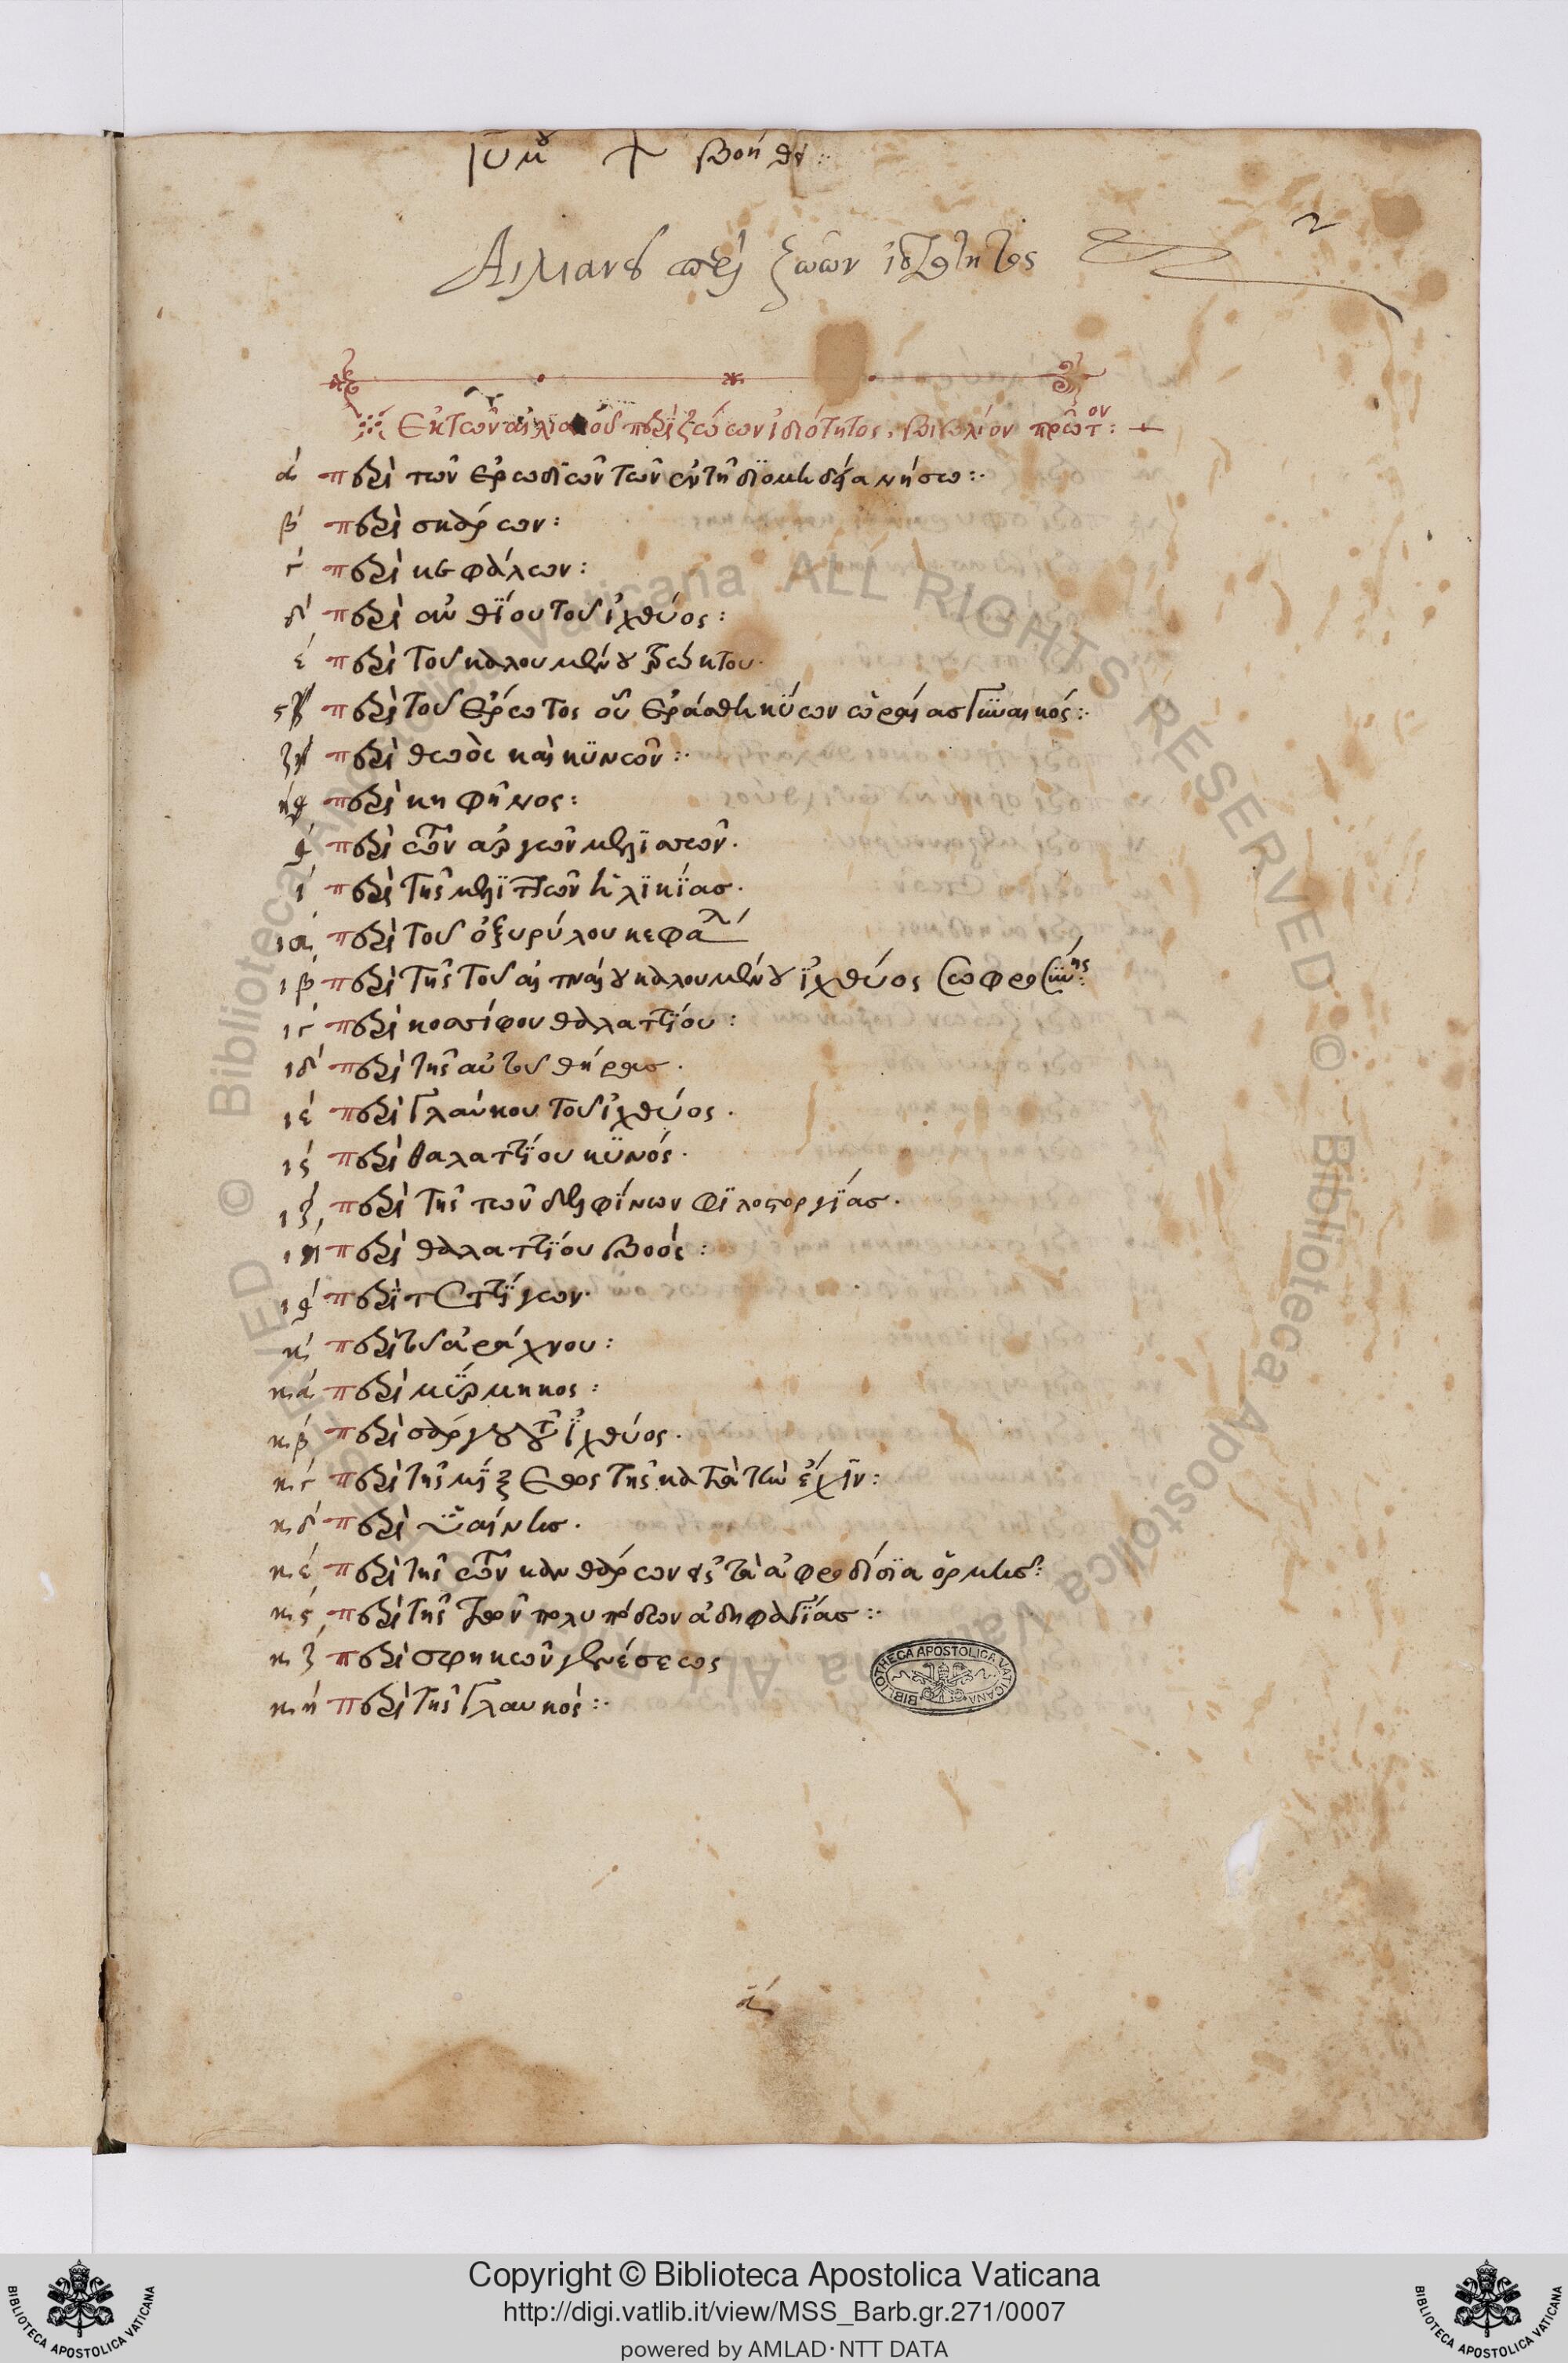 βοήθει:
2
Αιλιανου περι ζώων ιδιότητος
Ἐκ τῶν αἰλιανοῦ περὶ ζώων ἰδιότητος, βιβλίον πρῶτον:
α περὶ τῶν ἐρωδιῶν τῶν ἐν τῇ διομηδεία νήσω:
β περὶ σκάρων:
γ περὶ κεφάλων:
δ περὶ ἀνθίου τοῦ ἰχθύος:
ε περὶ τοῦ καλουμένου τρώκτου.
ς περὶ τοῦ ἔρωτος οὗ ἠράσθη κύων ὡραίας γυναικός:
ζ περὶ θωὸς καὶ κυνῶν:
η περὶ κηφῆνος:
θ περὶ τῶν ἀργῶν μελισσῶν.
ι περὶ τῆς μελιττῶν ἡλικίας.
ια περὶ τοῦ κεφαλ
ιβ περὶ τῆς τοῦ αἰτναίου καλουμένου ἰχθύος σωφροσύνης:
ιγ περὶ κοσσίφου θαλαττίου:
ιδ περὶ τῆς αὐτοῦ θήρας.
ιε περὶ γλαύκου τοῦ ἰχθύος.
ις περὶ θαλαττίου κυνός.
ιζ περὶ τῆς τῶν δελφίνων φιλοστοργίας.
ιη περὶ θαλαττίου βοός:
ιθ περὶ τεττίγων.
κ περὶ τοῦ ἀράχνου:
κα περὶ μύρμηκος:
κβ περὶ σάργου τοῦ ἰχθύος.
κγ περὶ τῆς μίξεως τῆς κατὰ τὸν ἔχιν:
κδ περὶ ὑαίνης.
κε περὶ τῆς τῶν κανθάρων εἰς τὰ ἀφροδίσια ὁρμῆς:
κς περὶ τῆς τῶν πολυπόδων ἀδηφαγίας:
κζ περὶ σφηκῶν γενέσεως
κη περὶ τῆς γλαυκός:
BIBLIOTHECA APOSTOLICA VATICANA
α
© Biblioteca Apostolica Vaticana ALL RIGHTS RESERVED © Biblioteca Apostolica Vaticana ALL RIGHTS RESERVED
Copyright © Biblioteca Apostolica Vaticana
http://digi.vatlib.it/view/MSS_Barb.gr.271/0007
powered by AMLAD·NTT DATA
BIBLIOTECA APOSTOLICA VATICANA
BIBLIOTECA APOSTOLICA VATICANA